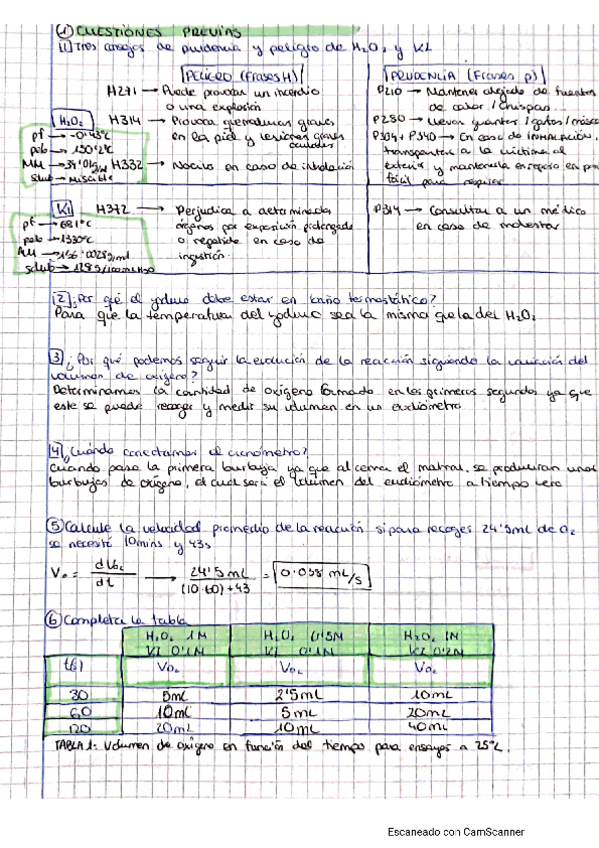 ① CUESTIONES PREVIAS
1] Tres consejos de prudencia y peligro de H₂O₂ y KI
PELIGRO (Frases H)
PRUDENCIA (Frases P)
H₂O₂
pf → -0'43ºC
peb → 150'2ºC
MM → 34'01g/
Slub → Miscible
H271 → Puede provocar un incendio
o una explosión
H314 → Provoca quemaduras graves
en la piel y lesiones graves
oculares
H332 → Nocivo en caso de inhalación
P210 → Mantener alejado de fuentes
de calor / Chispas...
P280 → llevar guantes / gafas /
P304 + P340 → En caso de INHALACIÓN,
transportar a la víctima al
exterior y mantenerla en reposo en
fácil para respirar
KI
pf → 681ºC
peb → 1330ºC
MM → 166'0028g/mol
solub → 128g/100mL H₂O
H372 → Perjudica a determinados
órganos por exposición prolongada
o repetida en caso de
ingestión.
P314 → Consultar a un médico
en caso de malestar
2] ¿Por qué el yoduro debe estar en baño termostático?
Para que la temperatura del yoduro sea la misma que la del H₂O₂
3] ¿Por qué podemos seguir la evolución de la reacción siguiendo la variación del
volumen de oxígeno?
Determinamos la cantidad de oxígeno formado en los primeros segundos ya que
este se puede recoger y medir su volumen en un eudiómetro
4] ¿Cuándo conectamos el cronómetro?
Cuando pase la primera burbuja ya que al cerrar el matraz, se produciran unas
burbujas de oxígeno, el cual será el volumen del eudiómetro a tiempo cero
⑤ Calcule la velocidad promedio de la reacción si para recoger 24'5mL de O₂
se necesitó 10mins y 43s
V₀ = dVO₂/dt → 24'5mL/(10·60)+43 = 0.038 mL/s
⑥ Completa la tabla
H₂O₂ 1M H₂O₂ 0'5M H₂O₂ 1M
KI 0'1M KI 0'1M KI 0'2M
t(s) VO₂ VO₂ VO₂
30 5mL 2'5mL 10mL
60 10mL 5mL 20mL
120 20mL 10mL 40mL
TABLA 1: Volumen de oxígeno en función del tiempo para ensayos a 25ºC.
Escaneado con CamScanner